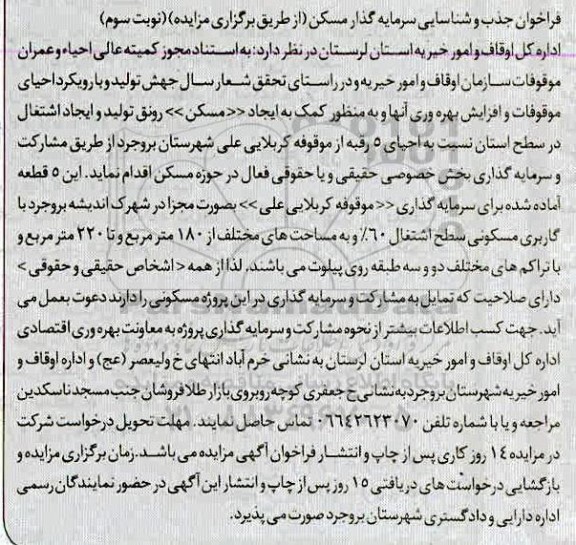 فراخوان جذب و شناسایی سرمایه گذار مسکن (از طریق برگزاری مزایده) (نوبت سوم)
اداره کل اوقاف و امور خیریه استان لرستان در نظر دارد: به استناد مجوز کمیته عالی احیاء و عمران
موقوفات سازمان اوقاف و امور خیریه و در راستای تحقق شعار سال جهش تولید و با رویکرد احیای
موقوفات و افزایش بهره وری آنها و به منظور کمک به ایجاد << مسکن >> رونق تولید و ایجاد اشتغال
در سطح استان نسبت به احیای ۵ رقبه از موقوفه کربلایی علی شهرستان بروجرد از طریق مشارکت
و سرمایه گذاری بخش خصوصی حقیقی و یا حقوقی فعال در حوزه مسکن اقدام نماید. این ۵ قطعه
آماده شده برای سرمایه گذاری << موقوفه کربلایی علی >> بصورت مجزا در شهرک اندیشه بروجرد با
کاربری مسکونی سطح اشتغال ۶۰٪ و به مساحت های مختلف از ۱۸۰ متر مربع و تا ۲۲۰ متر مربع و
با تراکم های مختلف دو و سه طبقه روی پیلوت می باشند. لذا از همه < اشخاص حقیقی و حقوقی >
دارای صلاحیت که تمایل به مشارکت و سرمایه گذاری در این پروژه مسکونی را دارند دعوت بعمل می
آید. جهت کسب اطلاعات بیشتر از نحوه مشارکت و سرمایه گذاری پروژه به معاونت بهره وری اقتصادی
اداره کل اوقاف و امور خیریه استان لرستان به نشانی خرم آباد انتهای خ ولیعصر (عج) و اداره اوقاف و
امور خیریه شهرستان بروجرد به نشانی خ جعفری کوچه روبروی بازار طلافروشان جنب مسجد ناسکدین
مراجعه و یا با شماره تلفن ۰۶۶۴۲۶۲۳۰۷۰ تماس حاصل نمایند. مهلت تحویل درخواست شرکت
در مزایده ۱۴ روز کاری پس از چاپ و انتشار فراخوان آگهی مزایده می باشد. زمان برگزاری مزایده و
بازگشایی درخواست های دریافتی ۱۵ روز پس از چاپ و انتشار این آگهی در حضور نمایندگان رسمی
اداره دارایی و دادگستری شهرستان بروجرد صورت می پذیرد.